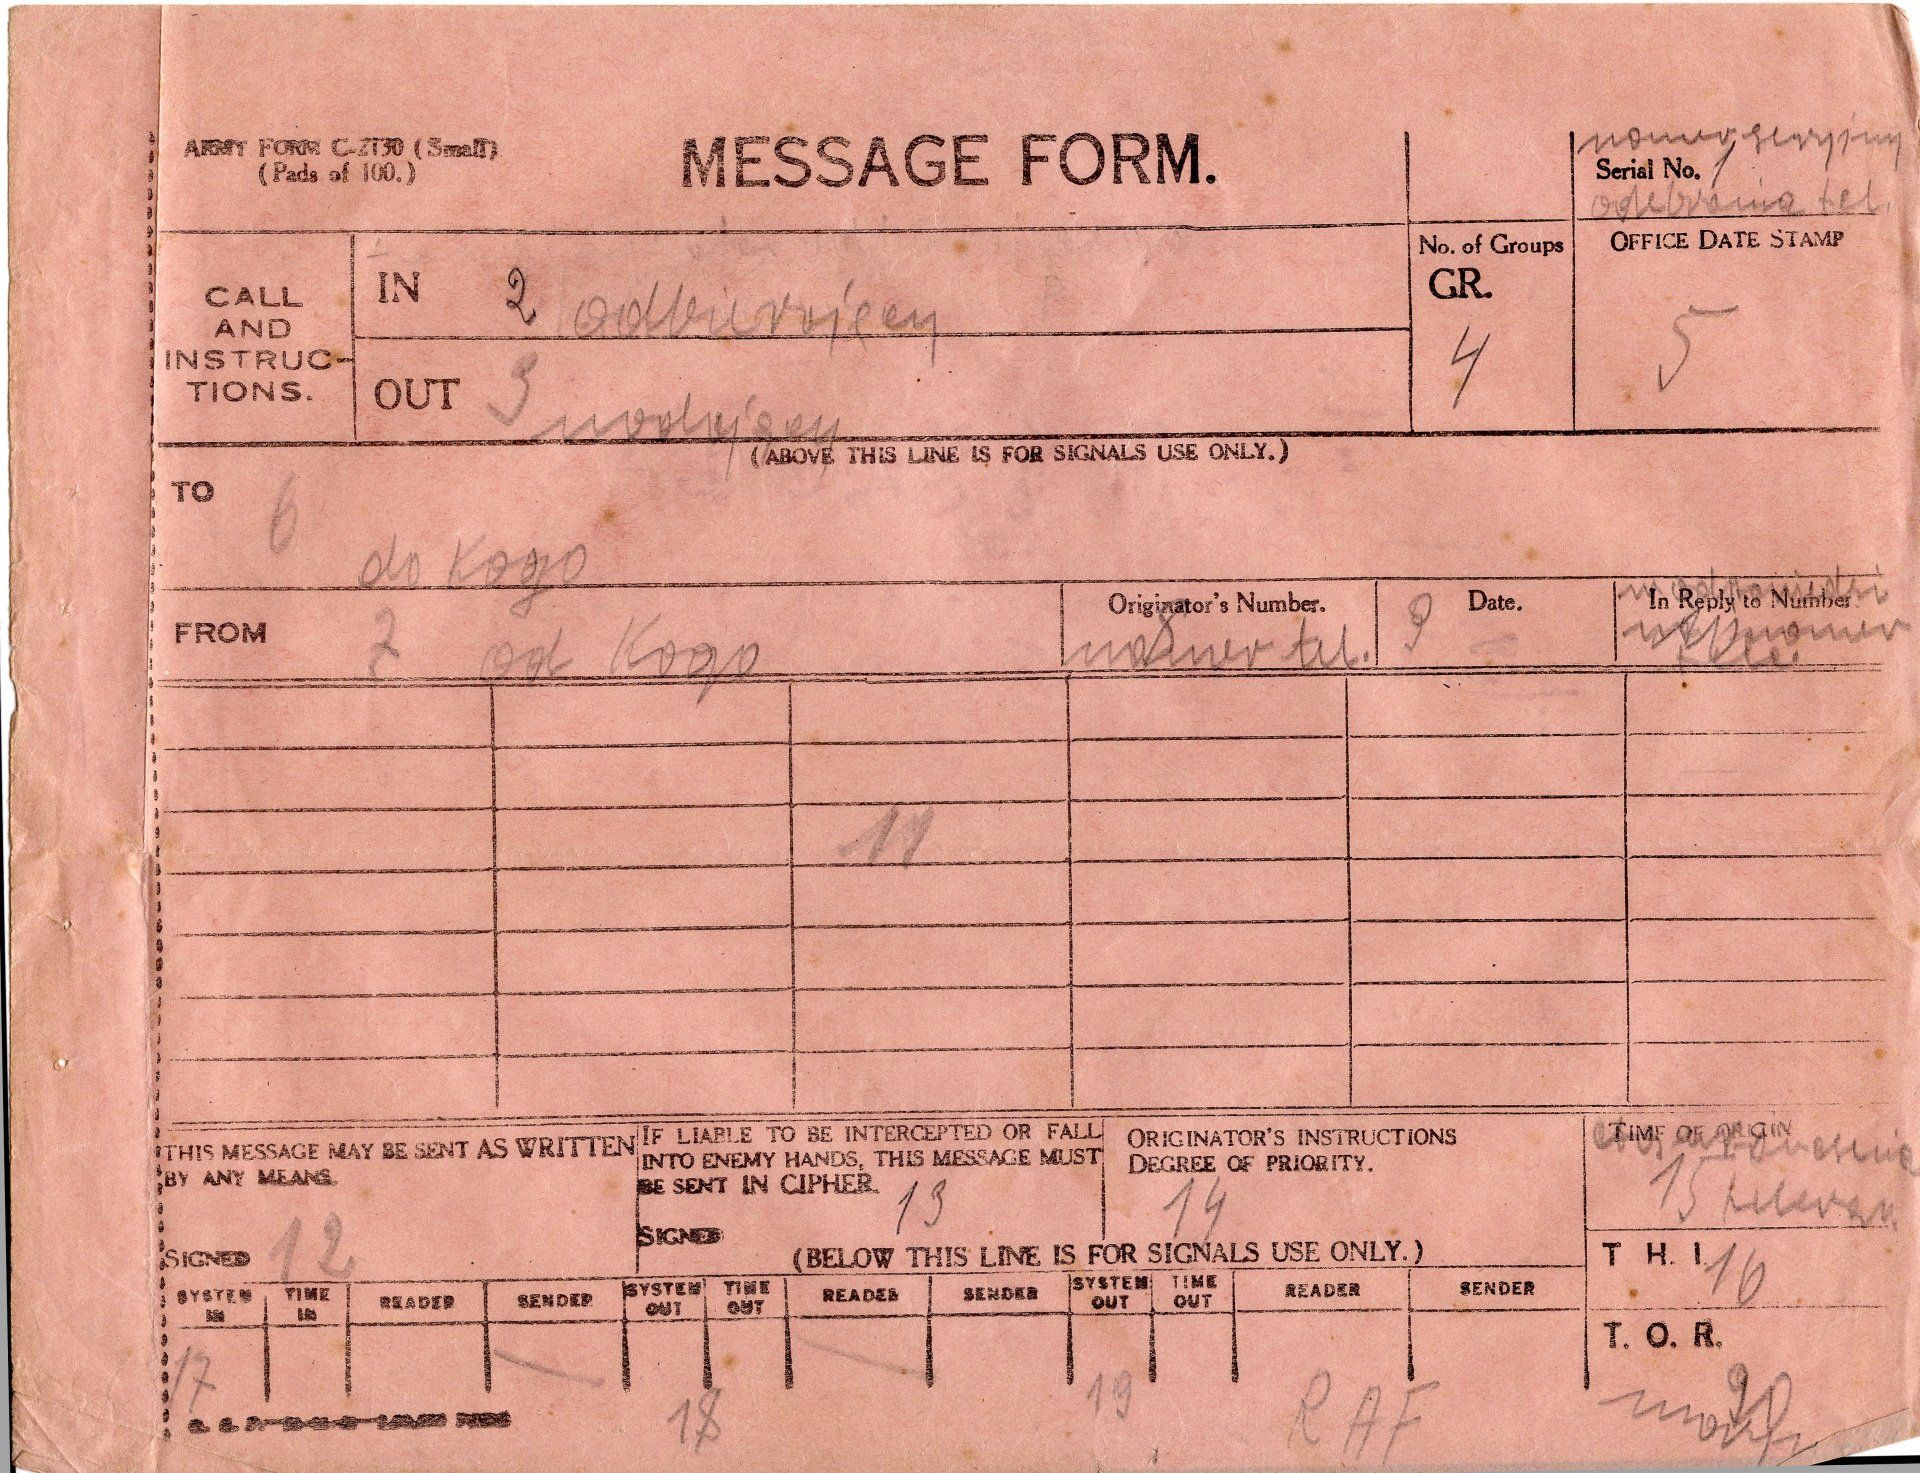 ARMY FORM C-2130 (Small)
(Pads of 100.)
MESSAGE FORM.
numer seryjny
Serial No. 1
odebrania tel.
CALL
AND
INSTRUC-
TIONS.
IN 2 odbierający
OUT 3 nadający
No. of Groups
GR.
4
OFFICE DATE STAMP
5
(ABOVE THIS LINE IS FOR SIGNALS USE ONLY.)
TO 6
do Kogo
FROM 7 od Kogo
Originator's Number.
8
numer tel.
9 Date.
In Reply to Number.
w odpowiedzi
numer
11
THIS MESSAGE MAY BE SENT AS WRITTEN
BY ANY MEANS.
SIGNED 12
IF LIABLE TO BE INTERCEPTED OR FALL
INTO ENEMY HANDS, THIS MESSAGE MUST
BE SENT IN CIPHER.
13
SIGNED
ORIGINATOR'S INSTRUCTIONS
DEGREE OF PRIORITY.
14
TIME OF ORIGIN
15
(BELOW THIS LINE IS FOR SIGNALS USE ONLY.)
T. H. I. 16
SYSTEM IN TIME IN READER SENDER SYSTEM OUT TIME OUT READER SENDER SYSTEM OUT TIME OUT READER SENDER
T. O. R.
20
17
18
19
RAF